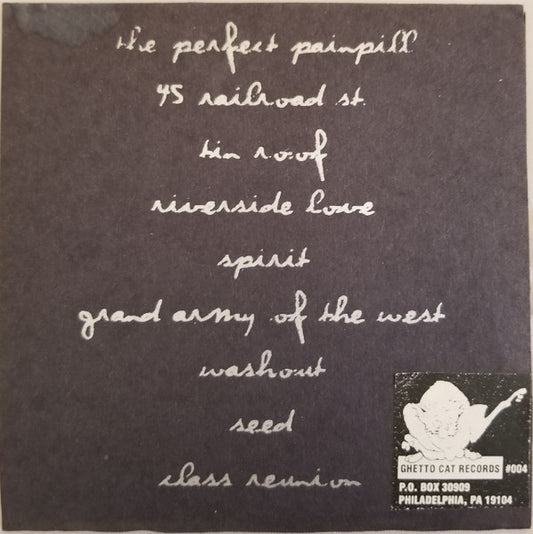 the perfect painpill
45 railroad st.
tin roof
riverside love
spirit
grand army of the west
washout
seed
class reunion
GHETTO CAT RECORDS #004
P.O. BOX 30909
PHILADELPHIA, PA 19104